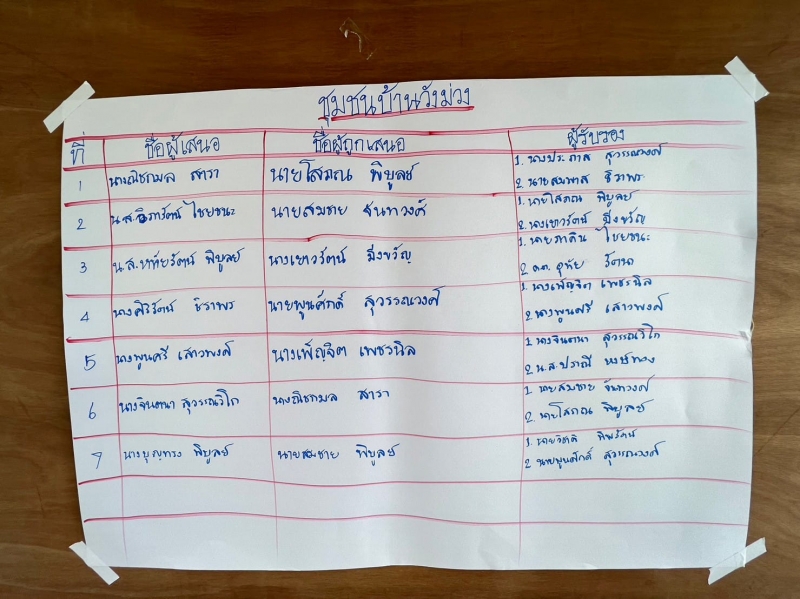 ชุมชนบ้านวังม่วง
ที่ ชื่อผู้เสนอ ชื่อผู้ถูกเสนอ ผู้รับรอง
1 นางณิชกมล สารา นายโสภณ พิบูลย์ 1. นางประภาส สุวรรณวงศ์
2. นายสมพาส ธิราพร
2 น.ส.วิภารัตน์ ไชยชนะ นายสมชาย จันทวงศ์ 1. นายโสภณ พิบูลย์
2. นางเยาวรัตน์ มิ่งขวัญ
3 น.ส.หทัยรัตน์ พิบูลย์ นางเยาวรัตน์ มิ่งขวัญ 1. นายภาคิน ไชยชนะ
2 ด.ต. อุทัย รัตนา
4 นางศิริรัตน์ ธิราพร นายพูนศักดิ์ สุวรรณวงศ์ 1. นางเพ็ญจิต เพชรนิล
2. นางพูนศรี เสาวพงศ์
5 นางพูนศรี เสาวพงศ์ นางเพ็ญจิต เพชรนิล 1. นางจินตนา สุวรรณวิโก
2. น.ส.ปราณี หงษ์ทอง
6 นางจินตนา สุวรรณวิโก นางณิชกมล สารา 1. นายสมชาย จันทวงศ์
2. นายโสภณ พิบูลย์
7 นางบุญทรง พิบูลย์ นายสมชาย พิบูลย์ 1. นายวิชาติ
2 นายพูนศักดิ์ สุวรรณวงศ์